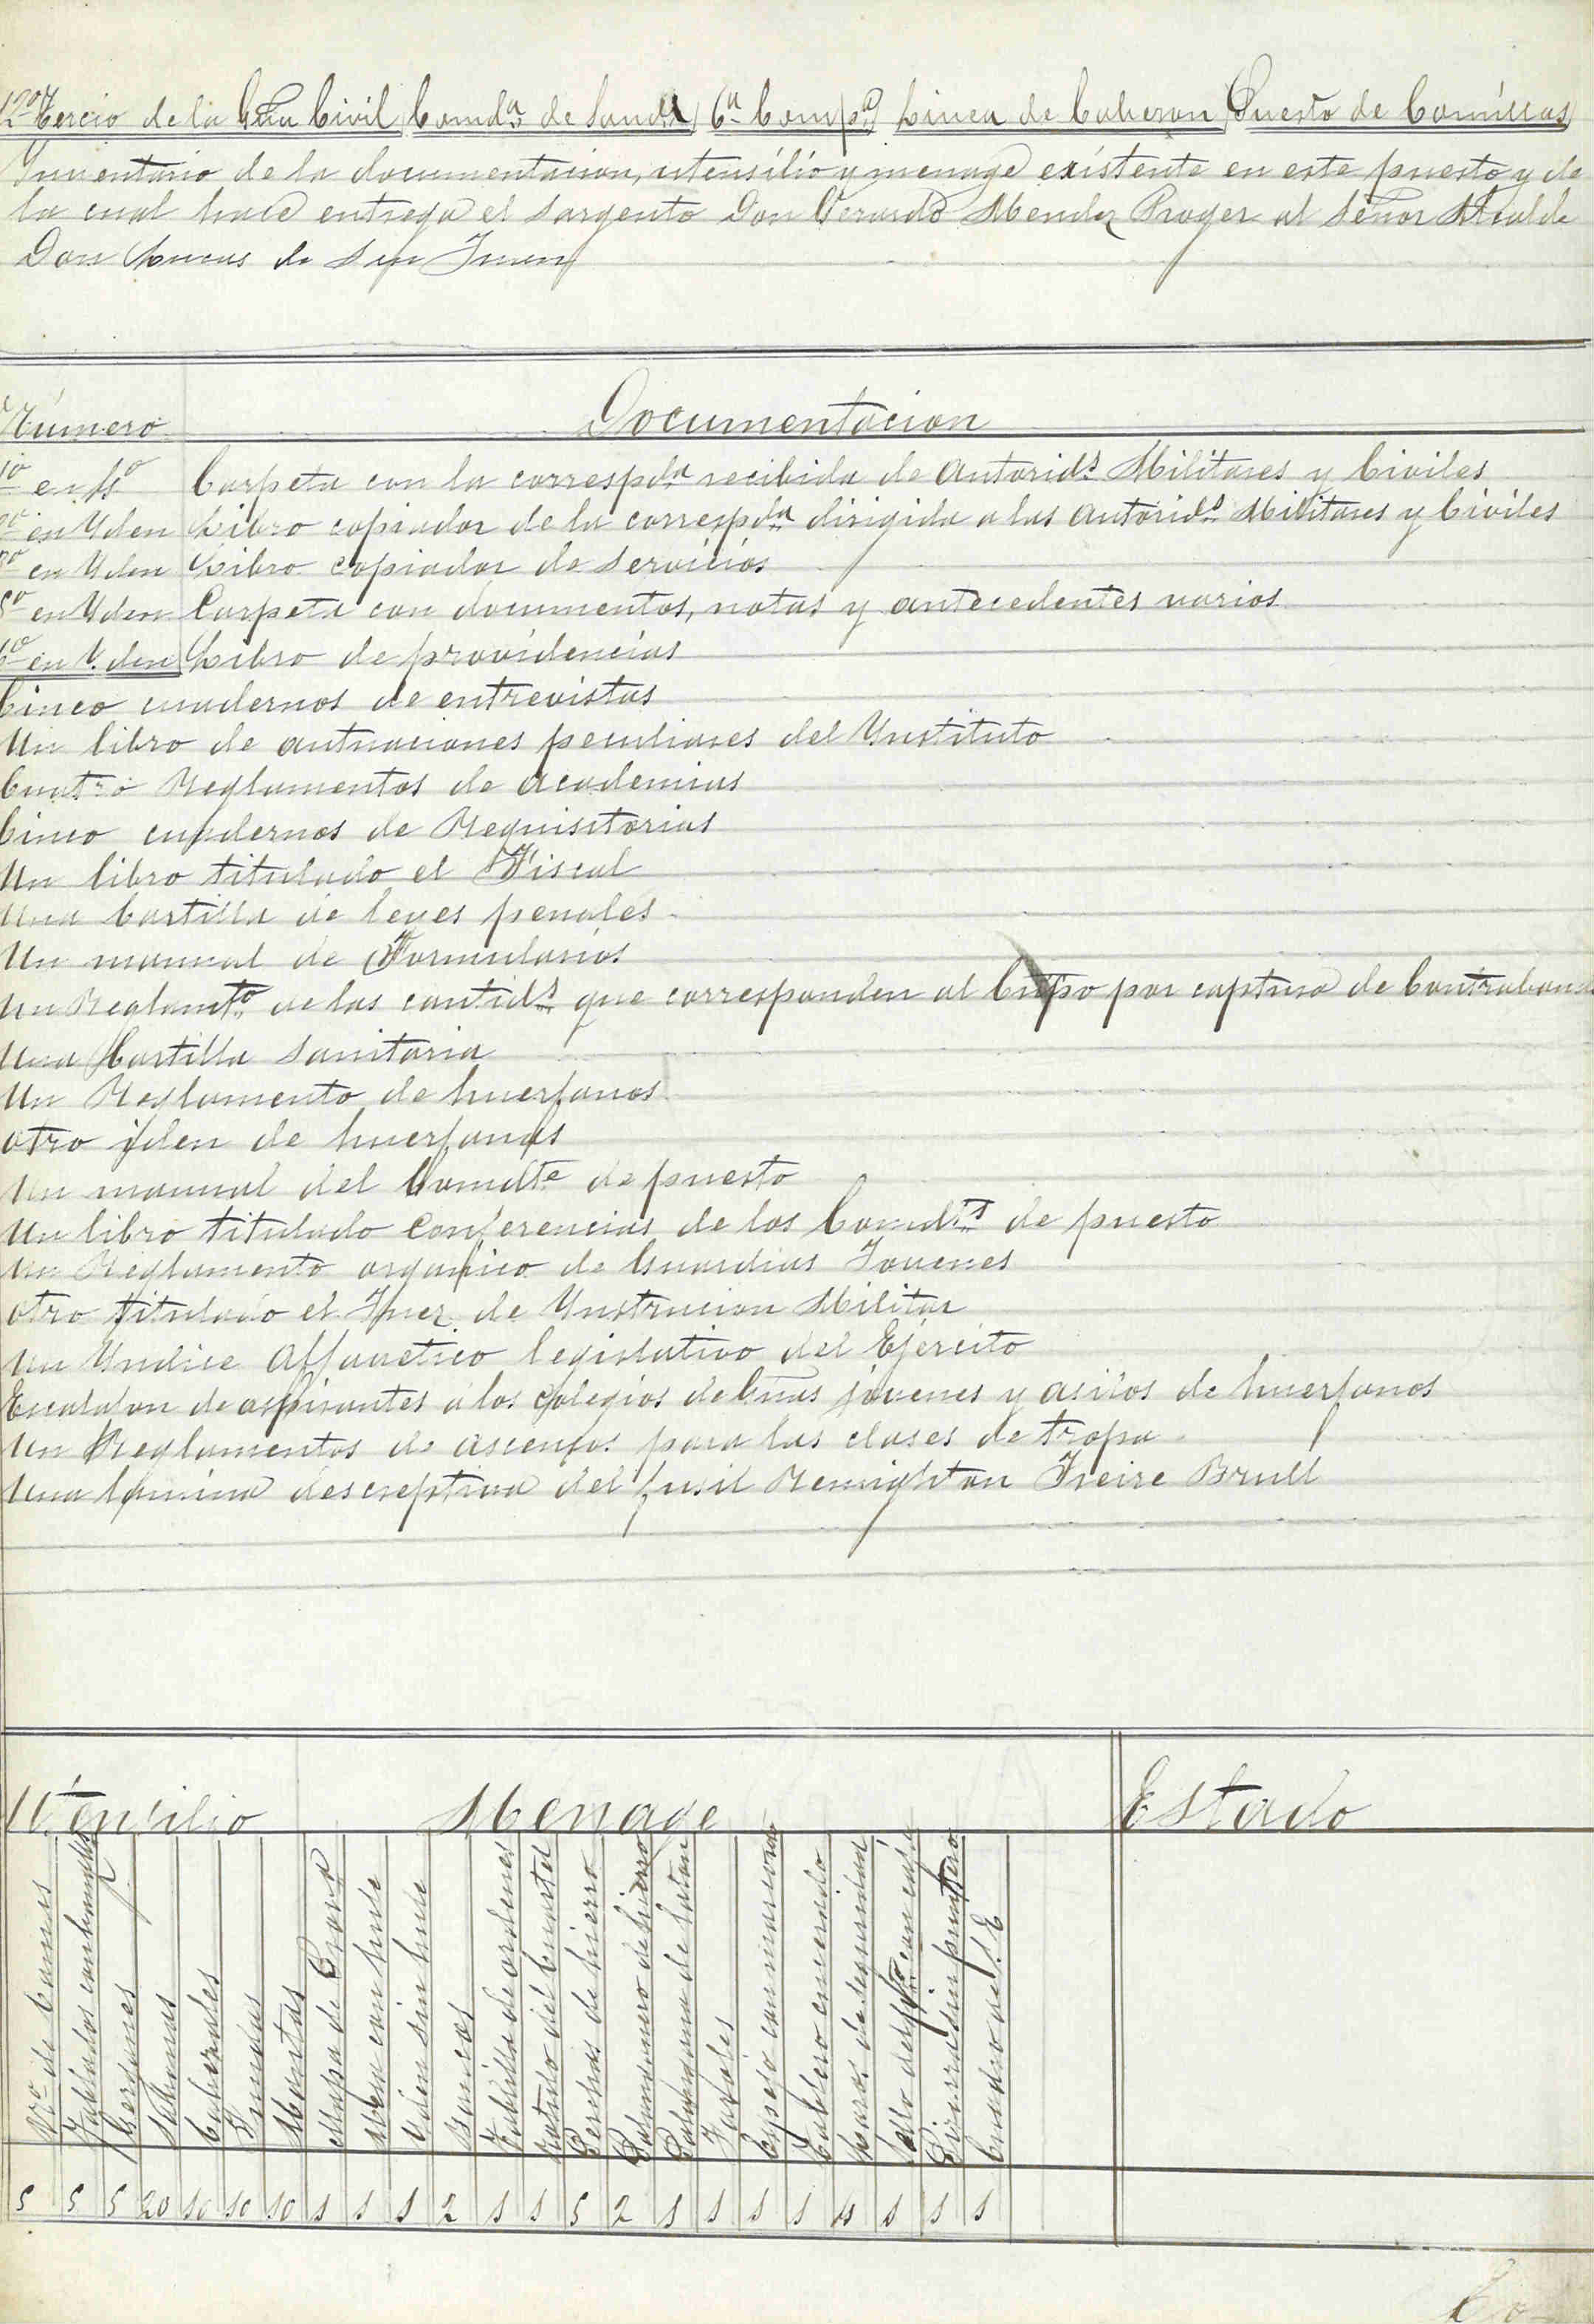 12º Tercio de la Gũa Civil Comdª de Sandr 6ª Compª Linea de Cabezon Puesto de Comillas
Ynventario de la documentacion, utensilio y menage existente en este puesto y de
la cual hace entrega el sargento Don Gerardo Mendez Proger al Señor Alcalde
Don Lucas de San Juan
Número Documentacion
1º en fº Carpeta con la correspdª recibida de Autoridˢ Militares y Civiles
2º en Yden Libro copiador de la correspdª dirigida a las Autoridˢ Militares y Civiles
en Yden Libro copiador de servicios
5º en Yden Carpeta con documentos, notas y antecedentes varios
6º en Yden Libro de providencias
Cinco cuadernos de entrevistas
Un libro de actuaciones peculiares del Ynstituto
Cuatro Reglamentos de academias
Cinco cuadernos de Requisitorias
Un libro titulado el Fiscal
Una Cartilla de leyes penales
Un manual de Formularios
Un Reglamtº de las cantidˢ que corresponden al Cuerpo por captura de Contraband
Una Cartilla sanitaria
Un Reglamento de huerfanos
otro yden de huerfanas
Un manual del Comdte de puesto
Un libro titulado Conferencias de los Comdtˢ de puesto
Un Reglamento organico de Guardias Jovenes
otro titulado el Juez de Ynstrucion Militar
Un Yndice Alfavetico legislativo del Ejército
Escalafon de aspirantes á los Colegios de Gũas jóvenes y asilos de huerfanos
Un Reglamentos de ascensos para las clases de tropa
Una lámina descreptiva del fusil Remighton Freire Brull
Utensilio Menage Estado
Nro de Camas
Tablados con banquillos
Gergones
Sabanas
Cabezales
Fundas
Mantas
Mapa de Prova
Mesa con hule
Yden sin hule
Bancos
Tablilla de ordenes
Rotulo del Cuartel
Perchas de hierro
Palanganero de hierro
Palangana de laton
Faroles
Espejo con marco
Tablero encerado
Laros de seguridad
Sello del ptº con caja
Pizarra sin puntero
Cuadro de S. E
5 5 5 20 10 10 10 1 1 1 2 1 1 5 2 1 1 1 1 4 1 1 1